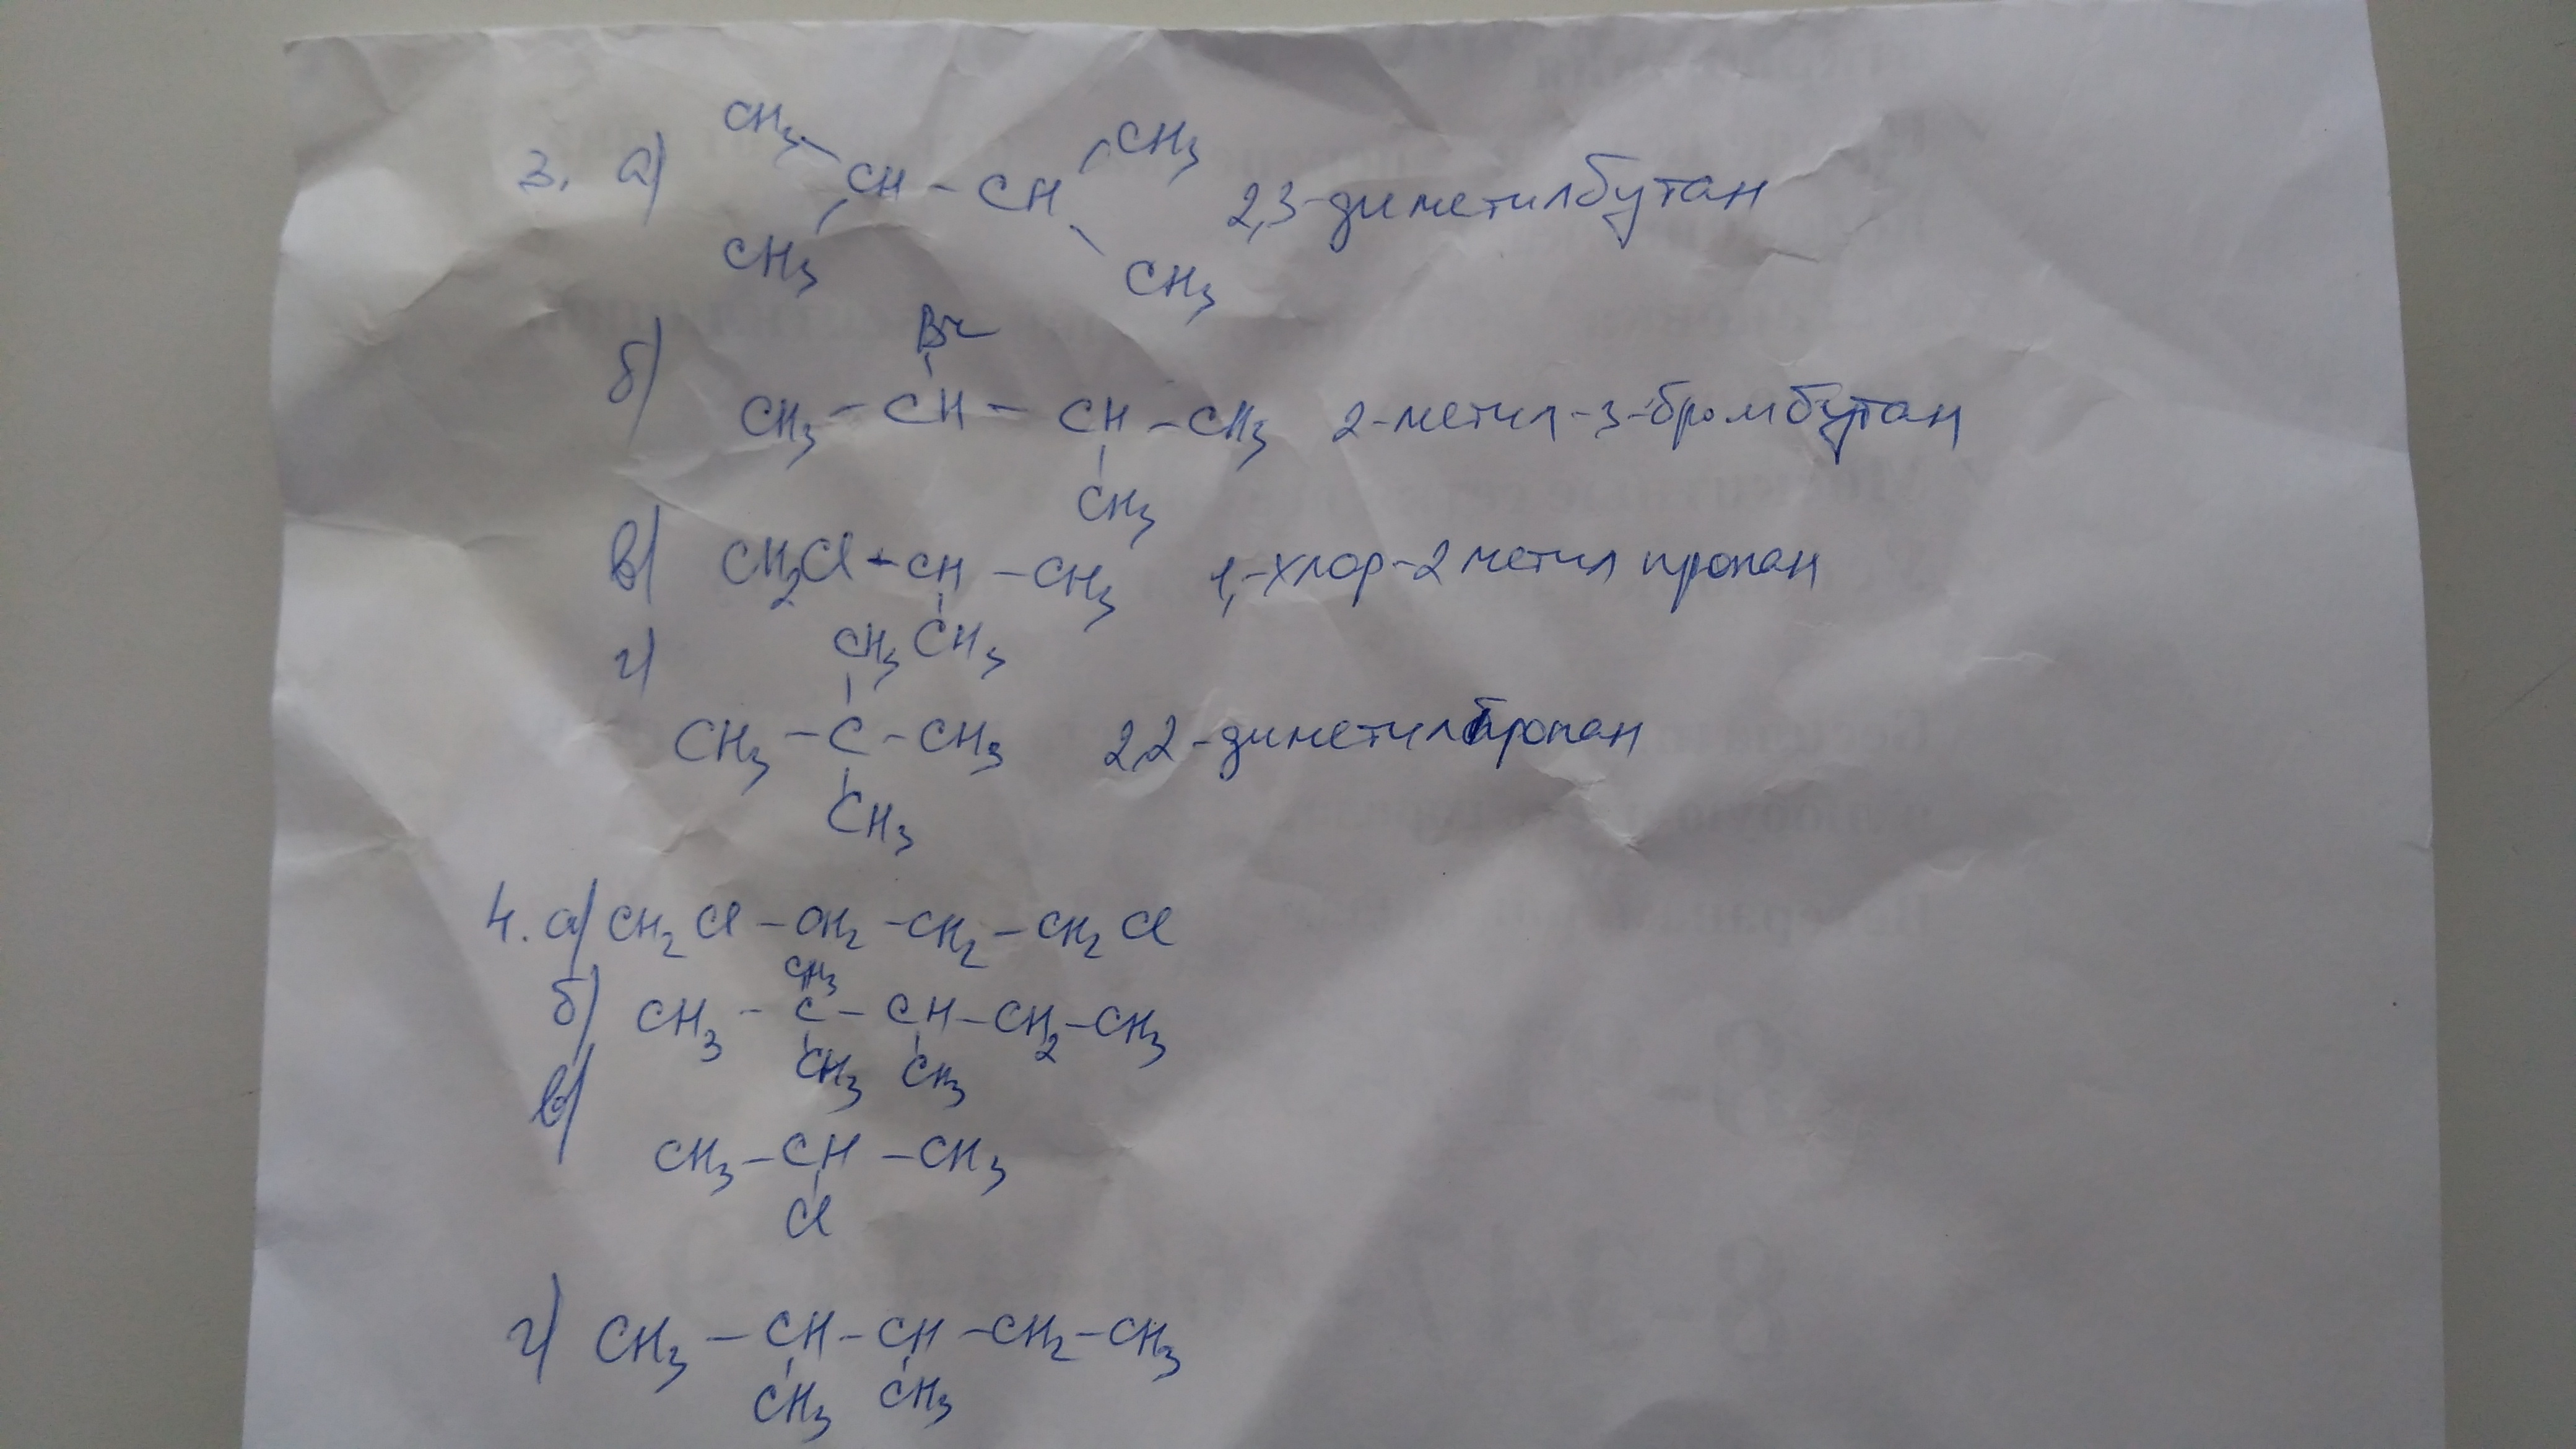 CH3 CH3
3. а) CH - CH 2,3-диметилбутан
CH3 CH3
Br
б) CH3 - CH - CH - CH3 2-метил-3-бромбутан
CH3
в) CH2Cl - CH - CH3 1,-хлор-2 метил пропан
CH3
г) CH3
CH3 - C - CH3 2,2-диметилпропан
CH3
4. а) CH2Cl - CH2 - CH2 - CH2Cl
CH3
б) CH3 - C - CH - CH2 - CH3
CH3 CH3
в)
CH3 - CH - CH3
Cl
г) CH3 - CH - CH - CH2 - CH3
CH3 CH3